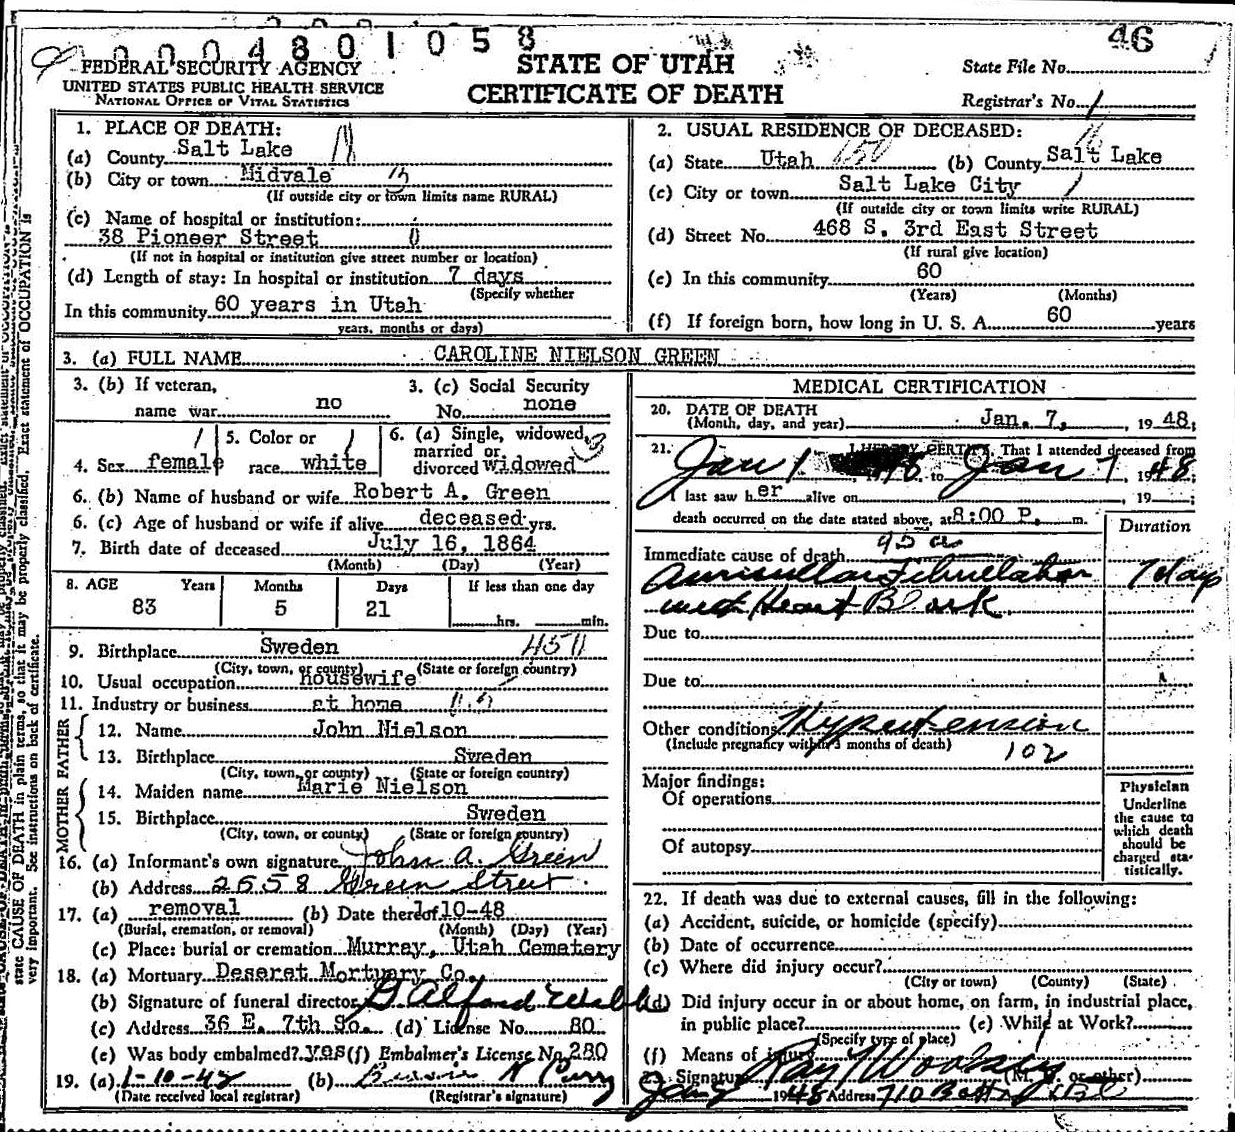 0004801058
46
FEDERAL SECURITY AGENCY
UNITED STATES PUBLIC HEALTH SERVICE
NATIONAL OFFICE OF VITAL STATISTICS
STATE OF UTAH
CERTIFICATE OF DEATH
State File No.
Registrar's No. 1
1. PLACE OF DEATH:
(a) County Salt Lake
(b) City or town Midvale
(If outside city or town limits name RURAL)
(c) Name of hospital or institution:
38 Pioneer Street
(If not in hospital or institution give street number or location)
(d) Length of stay: In hospital or institution 7 days
(Specify whether
In this community 60 years in Utah
years, months or days)
2. USUAL RESIDENCE OF DECEASED:
(a) State Utah (b) County Salt Lake
(c) City or town Salt Lake City
(If outside city or town limits write RURAL)
(d) Street No. 468 S. 3rd East Street
(If rural give location)
(e) In this community 60
(Years) (Months)
(f) If foreign born, how long in U. S. A. 60 years
3. (a) FULL NAME CAROLINE NIELSON GREEN
3. (b) If veteran,
name war no
3. (c) Social Security
No. none
4. Sex female
5. Color or
race white
6. (a) Single, widowed,
married or
divorced widowed
6. (b) Name of husband or wife Robert A. Green
6. (c) Age of husband or wife if alive deceased yrs.
7. Birth date of deceased July 16, 1864
(Month) (Day) (Year)
8. AGE Years Months Days If less than one day
83 5 21 hrs. min.
9. Birthplace Sweden
(City, town, or county) (State or foreign country)
10. Usual occupation housewife
11. Industry or business at home
FATHER
12. Name John Nielson
13. Birthplace Sweden
(City, town, or county) (State or foreign country)
MOTHER
14. Maiden name Marie Nielson
15. Birthplace Sweden
(City, town, or county) (State or foreign country)
16. (a) Informant's own signature John A. Green
(b) Address 2658 Green Street
17. (a) removal (b) Date thereof 1-10-48
(Burial, cremation, or removal) (Month) (Day) (Year)
(c) Place: burial or cremation Murray, Utah Cemetery
18. (a) Mortuary Deseret Mortuary Co.
(b) Signature of funeral director
(c) Address 36 E. 7th So. (d) License No. 80
(e) Was body embalmed? yes (f) Embalmer's License No. 280
19. (a) 1-10-48 (b)
(Date received local registrar) (Registrar's signature)
MEDICAL CERTIFICATION
20. DATE OF DEATH
(Month, day, and year) Jan. 7, 1948;
21. I HEREBY CERTIFY, That I attended deceased from
Jan 1 to Jan 7, 1948;
I last saw her alive on , 19 ;
death occurred on the date stated above, at 8:00 P. m.
Duration
Immediate cause of death
Auricular Fibrillation 7 days
with Heart Block
Due to
Due to
Other conditions Hypertension
(Include pregnancy within 3 months of death)
102
Major findings:
Of operations
Of autopsy
Physician
Underline
the cause to
which death
should be
charged sta-
tistically.
22. If death was due to external causes, fill in the following:
(a) Accident, suicide, or homicide (specify)
(b) Date of occurrence
(c) Where did injury occur?
(City or town) (County) (State)
(d) Did injury occur in or about home, on farm, in industrial place,
in public place? (e) While at Work?
(Specify type of place)
(f) Means of injury
23. Signature Ray (M. D. or other)
1948 Address 710
state CAUSE OF DEATH in plain terms, so that it may be properly classified. Exact statement of OCCUPATION is
very important. See instructions on back of certificate.